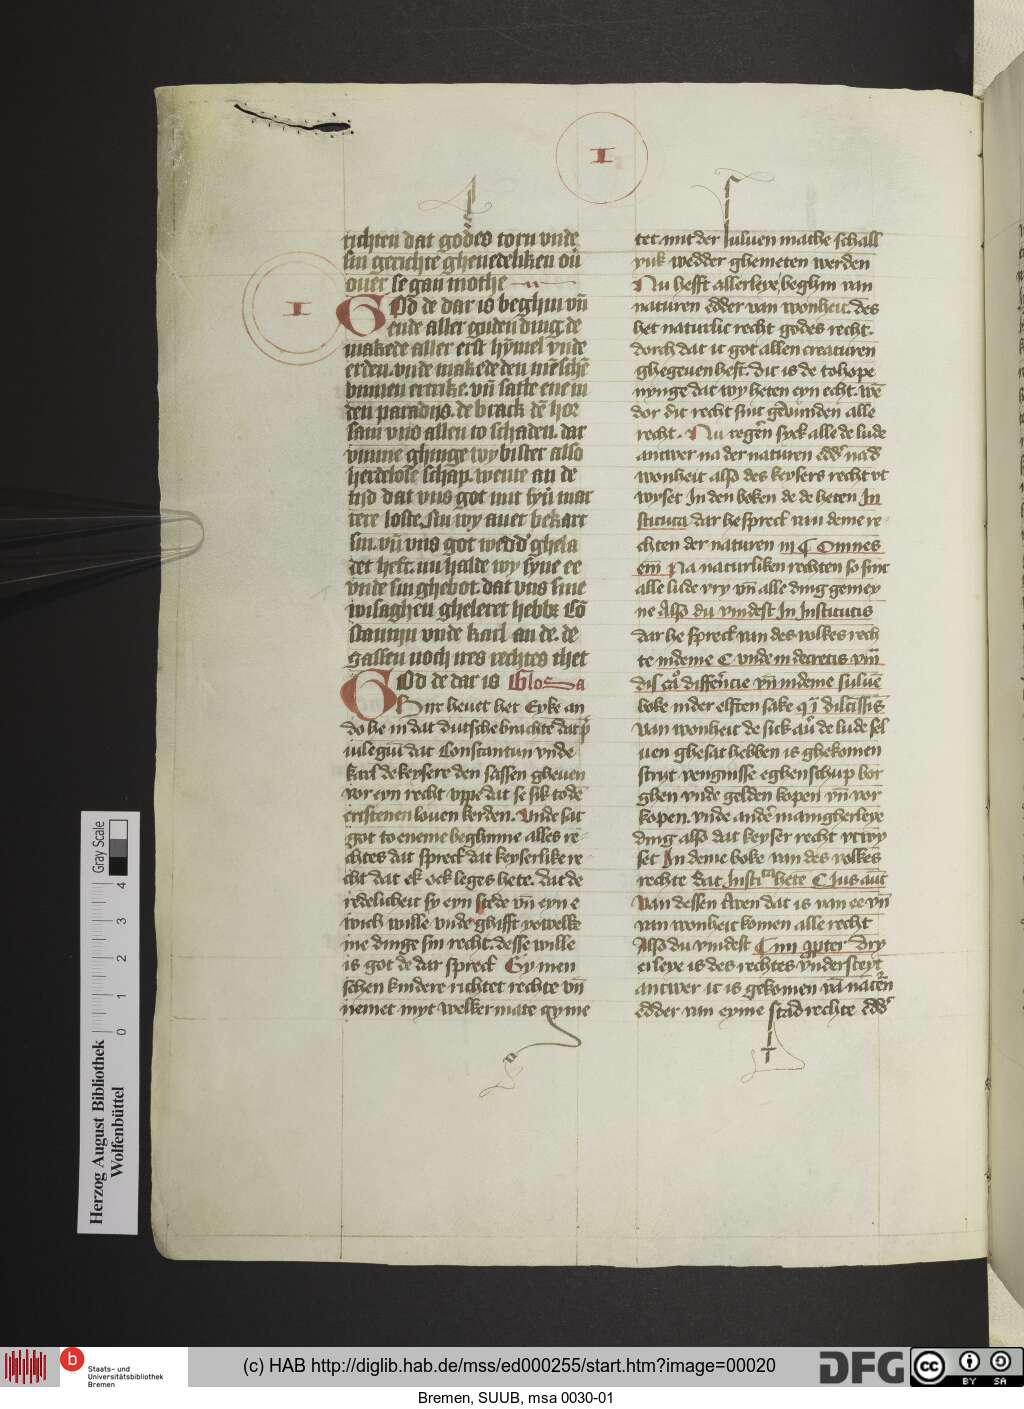 I
I
richten dat godes torn vnde
sin gerichte ghenedeliken ou̅
ouer se gan mothe
God de dar is beghin vn̅
ende aller guden ding. de
makede aller erst hymel vnde
erden. vnde makede den me̅sche̅
bynnen ertrike. vn̅ satte ene in
den paradijs. de brack de̅ hor
sam vns allen to schaden. dar
vmme ghinge wy bister also
herdelose schap. wente an de
tijd dat vns got mit syner mar
tere loste. Nu wy auer bekart
sin. vn̅ vns got wedd' ghela
det heft. nu halde wy syne ee
vnde sin ghebot. dat vns sine
wisaghen gheleret hebbe̅ Co̅
stantijn vnde karl an de. de
sassen noch ires rechtes thet
God de dar is Glosa
Hir heuet her Eyke an
do he in dat dutsche brachte dat p̅
iulegiu̅ dat Constantun vnde
karl de keysere den sassen gheuen
vor eyn recht vppe dat se sik to de̅
cristenen louen kerden. vnde sat
got to eneme beghinne alles re
chtes dat spreck dat keyserlike re
cht dat ek ock leges hete. dat de
redelicheit sy eyn stede vn̅ eyn e
wich wille vnde ghifft yowelke
me dinge sin recht. desse wille
is got de dar spreck Gy men
schen kindere richtet rechte vn̅
nemet myt welker mate gy me
tet mit der suluen mathe schall
yuk wedder ghemeten werden
Nu hefft allerleye beghin van
naturen edder van wonheit. des
het naturlic recht godes recht.
dorch dat it got allen creaturen
ghegeuen heft. dit is de tohope
nynge dat wy heten eyn echt. we̅
dor dit recht sint gewunden alle
recht. Nu rege̅n syck alle de lude
antwer na der naturen edd' na d'
wonheit also des keysers recht vt
wyset In den boken de de heten In
stituta dar he spreck van deme re
chten der naturen in C Omnes
em Na naturliken rechten so sint
alle lude vry vn̅ alle ding gemey
ne Also du vindest In Institutis
dar he spreck van des volkes rech
te indeme C vnde in decretis viii
dis ca̅ differe̅cie vn̅ indeme suluen
boke in der elften sake q i dilcissi̅s
van wonheit de sick au̅ de lude sel
uen ghesat hebben is ghekomen
strut vengnisse eghenschup bor
ghen vnde gelden kopen vn̅ vor
kopen. vnde ander manigherleye
ding also dat keyser recht vtwy
set In deme boke van des volkes
rechte dat Insti hete C Jus aut̅
van dessen twen dat is van ee vn̅
van wonheit komen alle recht
Also du vindest C iiii apter Dry
erleye is des rechtes vndersteyt
antwer it is gekomen va̅ nature̅
edder van eyme stadrechte edd'
Herzog August Bibliothek
Wolfenbüttel
0 1 2 3 4
Gray Scale
b
Staats- und
Universitätsbibliothek
Bremen
(c) HAB http://diglib.hab.de/mss/ed000255/start.htm?image=00020
DFG
cc BY SA
Bremen, SUUB, msa 0030-01